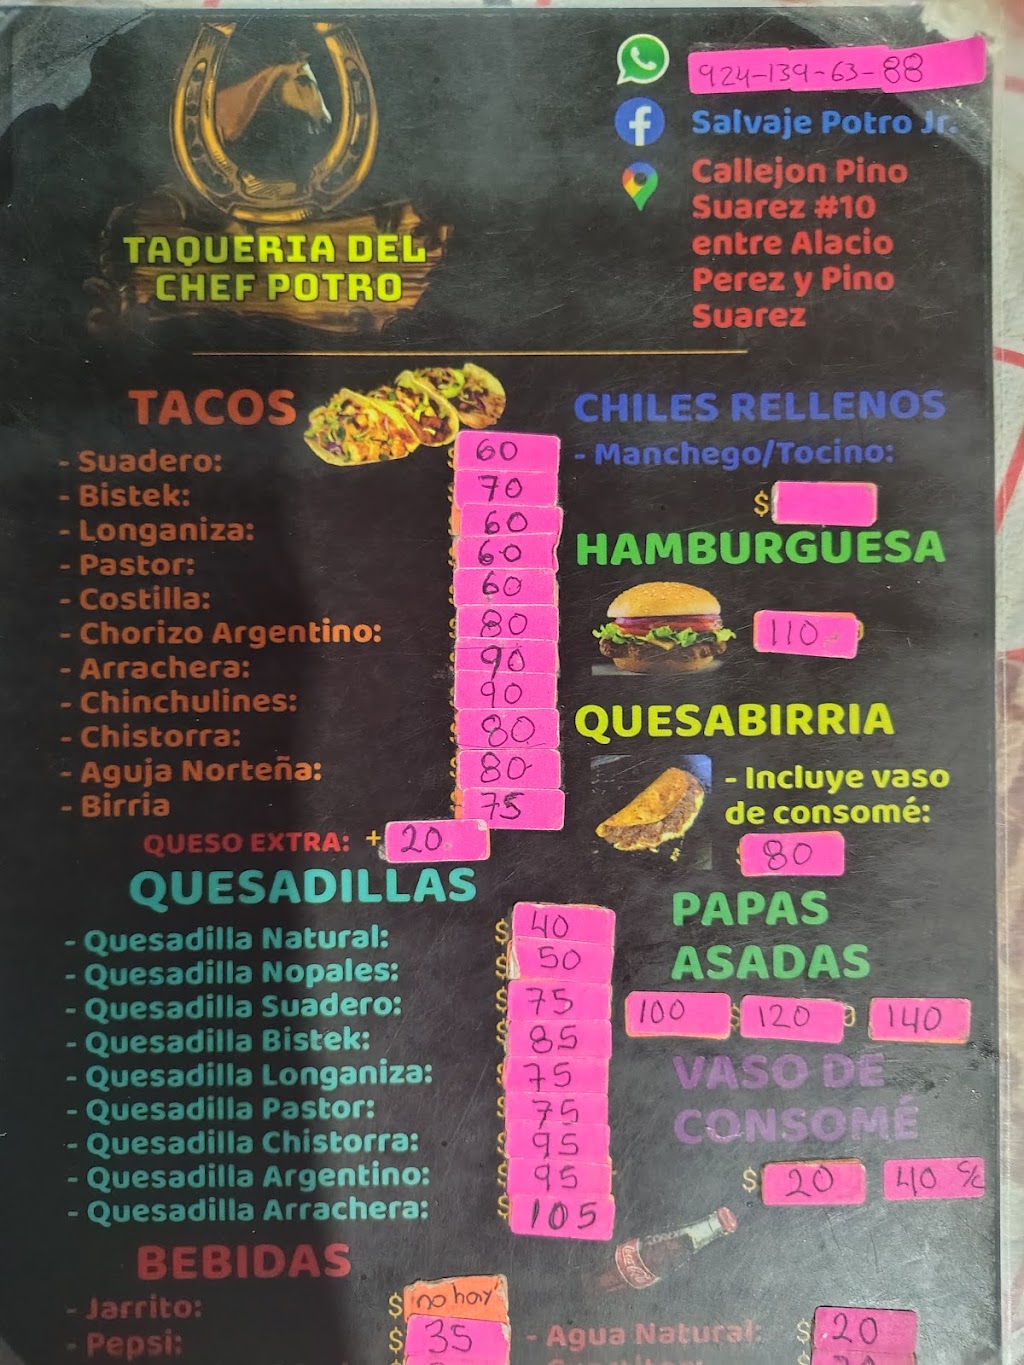 924-139-63-88
Salvaje Potro Jr.
Callejon Pino
Suarez #10
entre Alacio
Perez y Pino
Suarez
TAQUERIA DEL
CHEF POTRO
TACOS
- Suadero: 60
- Bistek: 70
- Longaniza: 60
- Pastor: 60
- Costilla: 60
- Chorizo Argentino: 80
- Arrachera: 90
- Chinchulines: 90
- Chistorra: 80
- Aguja Norteña: 80
- Birria 75
QUESO EXTRA: + 20
QUESADILLAS
- Quesadilla Natural: $ 40
- Quesadilla Nopales: $ 50
- Quesadilla Suadero: $ 75
- Quesadilla Bistek: $ 85
- Quesadilla Longaniza: $ 75
- Quesadilla Pastor: $ 75
- Quesadilla Chistorra: $ 95
- Quesadilla Argentino: $ 95
- Quesadilla Arrachera: $ 105
BEBIDAS
- Jarrito: $ no hay
- Pepsi: $ 35
CHILES RELLENOS
- Manchego/Tocino:
$
HAMBURGUESA
110
QUESABIRRIA
- Incluye vaso
de consomé:
80
PAPAS
ASADAS
100 $ 120 140
VASO DE
CONSOMÉ
$ 20 40 c/c
Coca-Cola
- Agua Natural: $ 20